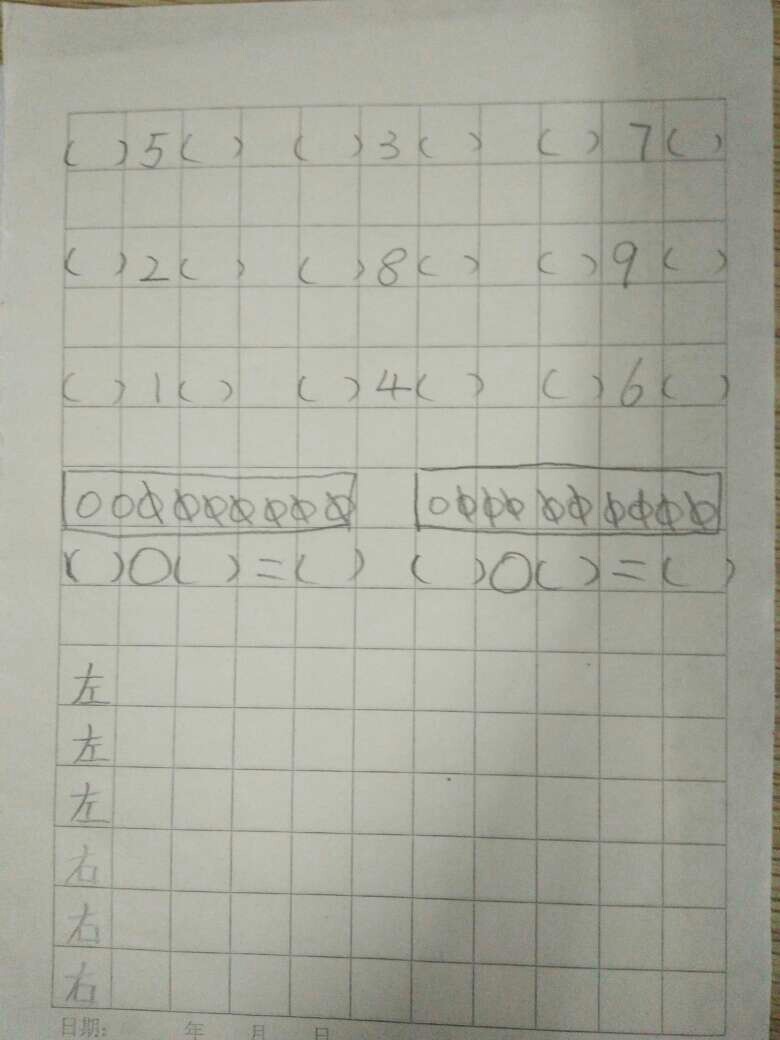 ( ) 5 ( ) ( ) 3 ( ) ( ) 7 ( )
( ) 2 ( ) ( ) 8 ( ) ( ) 9 ( )
( ) 1 ( ) ( ) 4 ( ) ( ) 6 ( )
( ) ○ ( ) = ( ) ( ) ○ ( ) = ( )
左
左
左
右
右
右
日期: 年 月 日